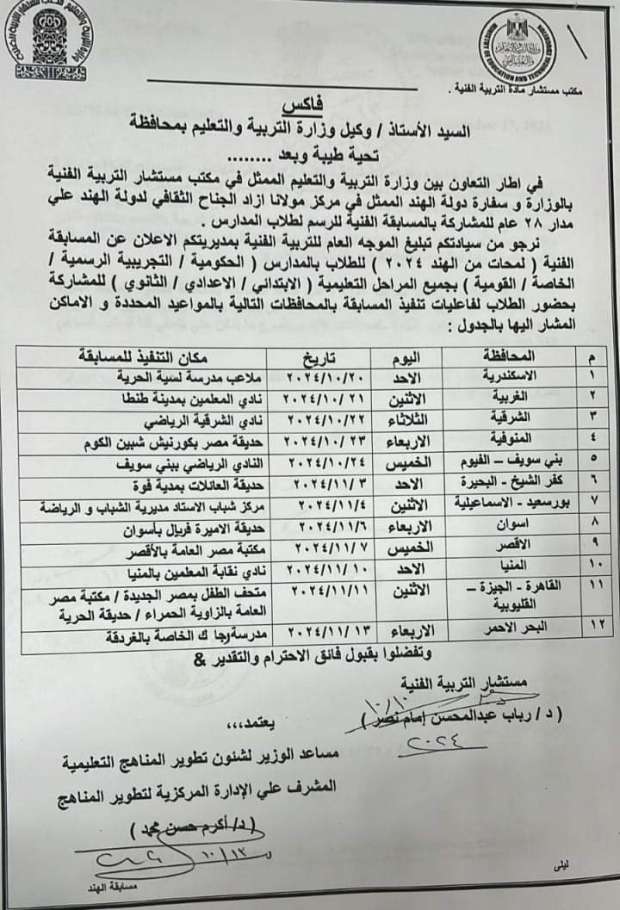 MINISTRY OF EDUCATION AND TECHNICAL EDUCATION
مكتب مستشار مادة التربية الفنية .
فاكس
السيد الأستاذ / وكيل وزارة التربية والتعليم بمحافظة
تحية طيبة وبعد ........
في اطار التعاون بين وزارة التربية والتعليم الممثل في مكتب مستشار التربية الفنية
بالوزارة و سفارة دولة الهند الممثل في مركز مولانا ازاد الجناح الثقافي لدولة الهند علي
مدار ٢٨ عام للمشاركة بالمسابقة الفنية للرسم لطلاب المدارس .
نرجو من سيادتكم تبليغ الموجه العام للتربية الفنية بمديريتكم الاعلان عن المسابقة
الفنية ( لمحات من الهند ٢٠٢٤ ) للطلاب بالمدارس ( الحكومية / التجريبية الرسمية /
الخاصة / القومية ) بجميع المراحل التعليمية ( الابتدائي / الاعدادي / الثانوي ) للمشاركة
بحضور الطلاب لفاعليات تنفيذ المسابقة بالمحافظات التالية بالمواعيد المحددة و الاماكن
المشار اليها بالجدول :
م المحافظة اليوم تاريخ مكان التنفيذ للمسابقة
١ الاسكندرية الاحد ٢٠٢٤/١٠/٢٠ ملاعب مدرسة لسية الحرية
٢ الغربية الاثنين ٢٠٢٤/١٠/ ٢١ نادي المعلمين بمدينة طنطا
٣ الشرقية الثلاثاء ٢٠٢٤/١٠/٢٢ نادي الشرقية الرياضي
٤ المنوفية الاربعاء ٢٠٢٤/١٠/ ٢٣ حديقة مصر بكورنيش شبين الكوم
٥ بني سويف – الفيوم الخميس ٢٠٢٤/١٠/٢٤ النادي الرياضي ببني سويف
٦ كفر الشيخ - البحيرة الاحد ٢٠٢٤/١١/ ٣ حديقة العائلات بمدية فوة
٧ بورسعيد - الاسماعيلية الاثنين ٢٠٢٤/١١/٤ مركز شباب الاستاد مديرية الشباب و الرياضة
٨ اسوان الاربعاء ٢٠٢٤/١١/٦ حديقة الاميرة فريال بأسوان
٩ الاقصر الخميس ٢٠٢٤/١١/ ٧ مكتبة مصر العامة بالأقصر
١٠ المنيا الاحد ٢٠٢٤/١١/ ١٠ نادي نقابة المعلمين بالمنيا
١١ القاهرة - الجيزة – الاثنين ٢٠٢٤/١١/١١ متحف الطفل بمصر الجديدة / مكتبة مصر
القليوبية العامة بالزاوية الحمراء / حديقة الحرية
١٢ البحر الاحمر الاربعاء ٢٠٢٤/١١/ ١٣ مدرسة ك الخاصة بالغردقة
وتفضلوا بقبول فائق الاحترام والتقدير &
مستشار التربية الفنية
١٠/١٠
( د/ رباب عبدالمحسن إمام نصر )
٢٠٢٤
يعتمد،،،
مساعد الوزير لشئون تطوير المناهج التعليمية
المشرف علي الإدارة المركزية لتطوير المناهج
( د/ أكرم حسن محمد )
١٠/١٣
ليلى
مسابقة الهند